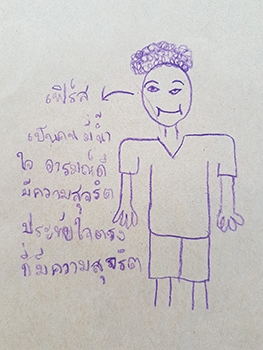 เฟิร์ส
เป็นคนมีน้ำ
ใจ อารมณ์ดี
มีความสุจริต
ประทับใจตรง
ที่มีความสุจริต